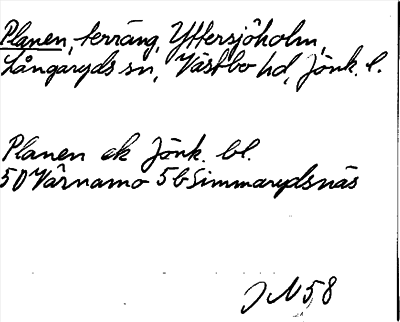 Planen, terräng, Yttersjöholm,
Långaryds sn, Västbo hd, Jönk. l.
Planen ek Jönk. bl.
5D Värnamo 5b Simmarydsnäs
JN58